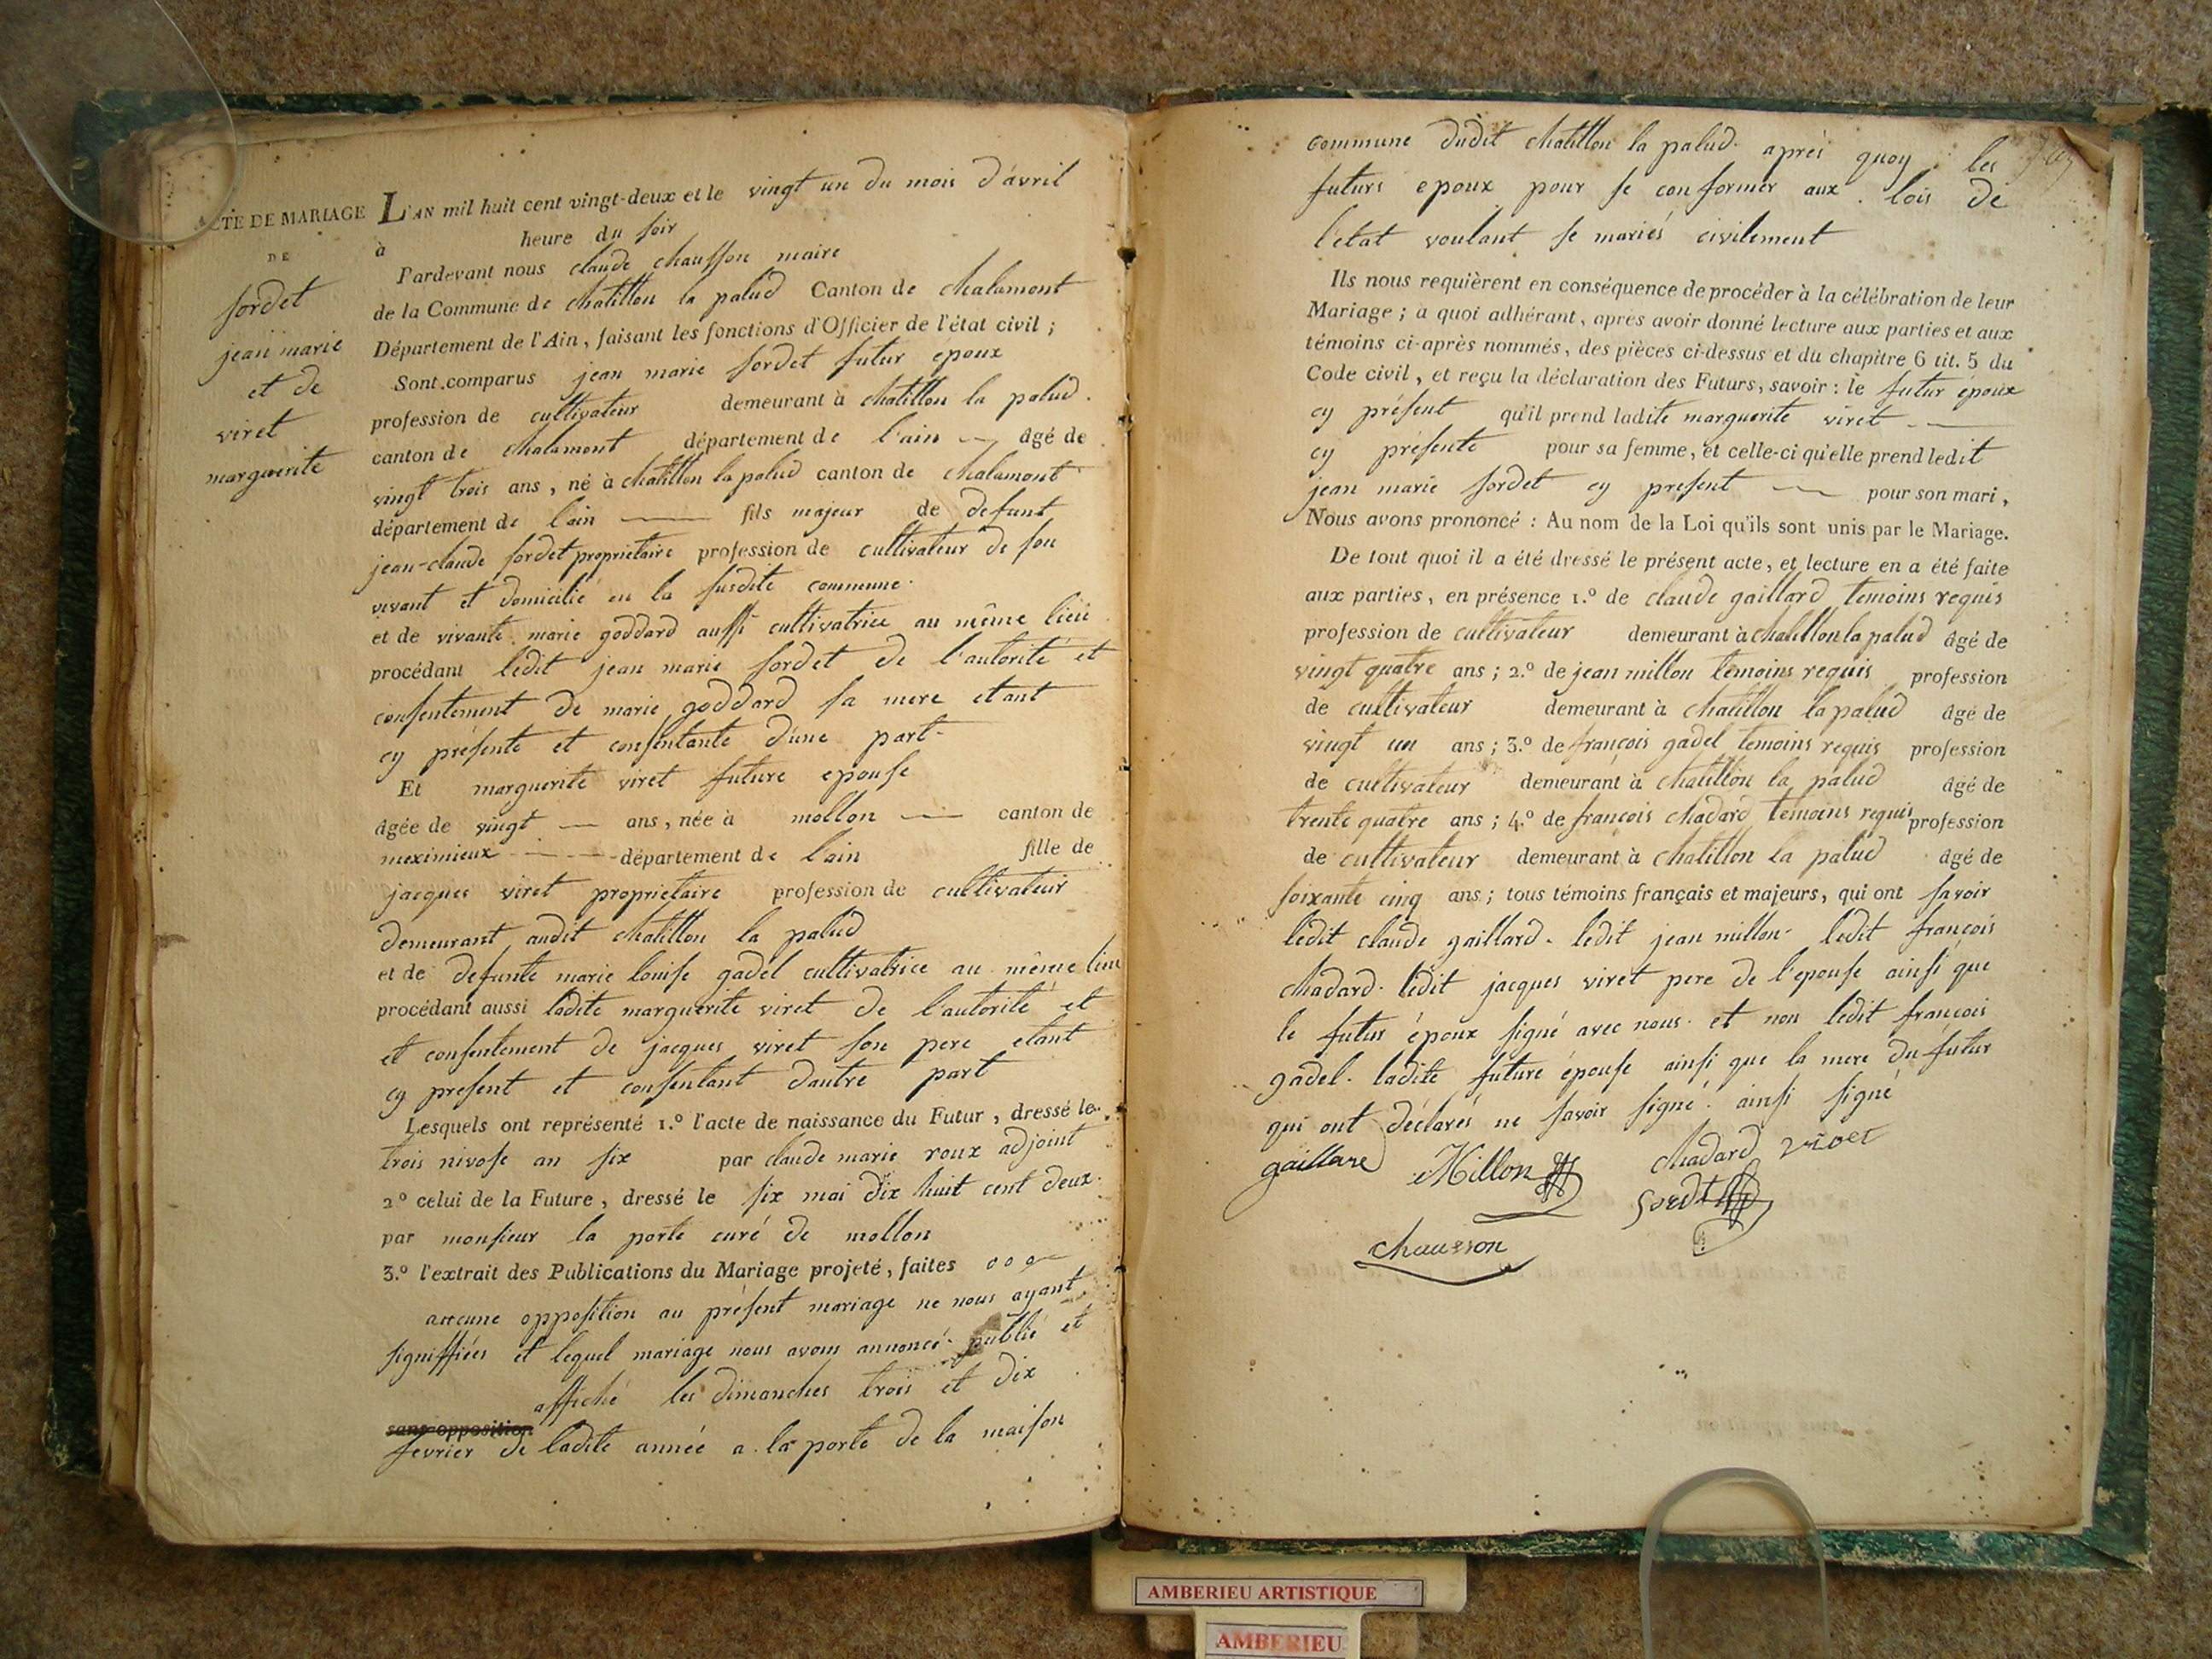 ACTE DE MARIAGE
DE
sordet
jean marie
et de
viret
marguerite
L'AN mil huit cent vingt-deux et le vingt un du mois d'avril
à heure du soir
Pardevant nous claude chausson maire
de la Commune de chatillon la palud Canton de chalamont
Département de l'Ain, faisant les fonctions d'Officier de l'état civil ;
Sont comparus jean marie sordet futur époux
profession de cultivateur demeurant à chatillon la palud.
canton de chalamont département de l'ain âgé de
vingt trois ans, né à chatillon la palud canton de chalamont
département de l'ain fils majeur de defunt
jean-claude sordet proprietaire profession de cultivateur de son
vivant et domicilié en la susdite commune.
et de vivante marie goddard aussi cultivatrice au même lieu
procédant ledit jean marie sordet de l'autorité et
consentement de marie goddard sa mere etant
cy présente et consentante d'une part-
Et marguerite viret future epouse
âgée de vingt ans, née à mollon canton de
meximieux département de l'ain fille de
jacques viret proprietaire profession de cultivateur
demeurant audit chatillon la palud
et de defunte marie louise gadel cultivatrice au même lieu
procédant aussi ladite marguerite viret de l'autorité et
et consentement de jacques viret son pere etant
cy present et consentant dautre part
Lesquels ont représenté 1.º l'acte de naissance du Futur, dressé le
trois nivose an six par claude marie roux adjoint
2º celui de la Future, dressé le six mai dix huit cent deux.
par monsieur la porte curé de mollon
3.º l'extrait des Publications du Mariage projeté, faites
aucune opposition au présent mariage ne nous ayant
signiffiées et lequel mariage nous avons annoncé. publié et
affiché les dimanches trois et dix
sans opposition
fevrier de ladite année a la porte de la maison
commune dudit chatillon la palud. après quoy les
futurs epoux pour se conformer aux lois de
l'état voulant se mariés civilement
Ils nous requièrent en conséquence de procéder à la célébration de leur
Mariage ; a quoi adhérant, apres avoir donné lecture aux parties et aux
témoins ci-après nommés, des pièces ci-dessus et du chapître 6 tit. 5 du
Code civil, et reçu la déclaration des Futurs, savoir : le futur époux
cy présent qu'il prend ladite marguerite viret
cy présente pour sa femme, et celle-ci qu'elle prend ledit
jean marie sordet cy present pour son mari,
Nous avons prononcé : Au nom de la Loi qu'ils sont unis par le Mariage.
De tout quoi il a été dressé le présent acte, et lecture en a été faite
aux parties, en présence 1.º de claude gaillard temoins requis
profession de cultivateur demeurant à chatillon la palud âgé de
vingt quatre ans ; 2.º de jean millon temoins requis profession
de cultivateur demeurant à chatillon la palud âgé de
vingt un ans ; 3.º de françois gadel temoins requis profession
de cultivateur demeurant à chatillon la palud âgé de
trente quatre ans ; 4.º de françois chadard témoins requis profession
de cultivateur demeurant à chatillon la palud âgé de
soixante cinq ans ; tous témoins français et majeurs, qui ont savoir
ledit claude gaillard. ledit jean millon- ledit françois
chadard. ledit jacques viret pere de l'epouse ainsi que
le futur époux signé avec nous. et non ledit françois
gadel. ladite future épouse ainsi que la mere du futur
qui ont déclarés ne savoir signé. ainsi signé
gaillard Millon chadard viret
Sordt
chausson
AMBERIEU ARTISTIQUE
AMBERIEU